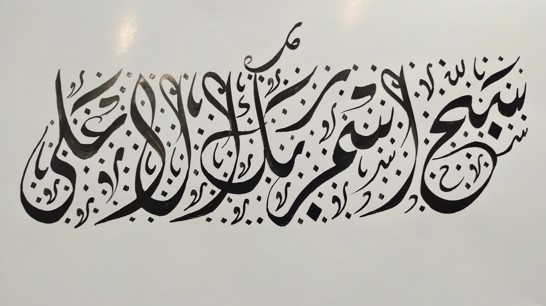 سبح اسم ربك الاعلى